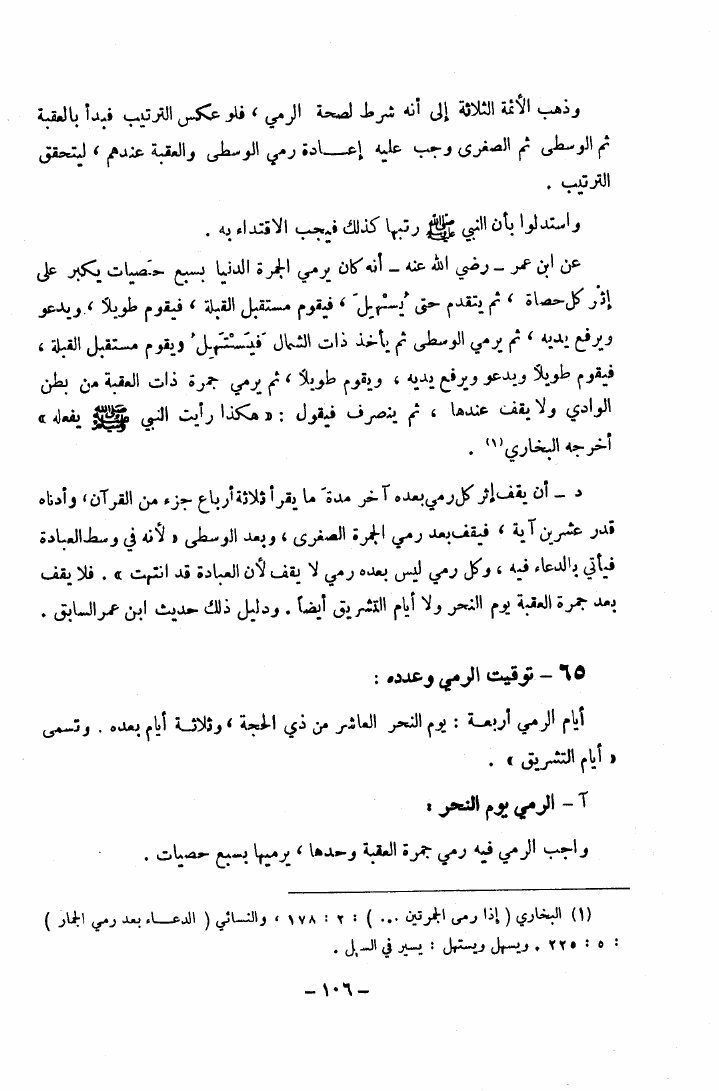 وذهب الأئمة الثلاثة إلى أنه شرط لصحة الرمي ، فلو عكس الترتيب فبدأ بالعقبة
ثم الوسطى ثم الصغرى وجب عليه إعـــادة رمي الوسطى والعقبة عندهم ، ليتحقق
الترتيب .
واستدلوا بأن النبي ﷺ رتبها كذلك فيجب الاقتداء به .
عن ابن عمر – رضي الله عنه – أنه كان يرمي الجمرة الدنيا بسبع حَصيات يكبر على
إثْر كل حصاة ، ثم يتقدم حتى يُسْهِلَ ، فيقوم مستقبل القبلة ، فيقوم طويلاً ، ويدعو
ويرفع يديه ، ثم يرمي الوسطى ثم يأخذ ذات الشمال فيَسْتَهِلُ ويقوم مستقبل القبلة ،
فيقوم طويلاً ويدعو ويرفع يديه ، ويقوم طويلاً ، ثم يرمي جمرة ذات العقبة من بطن
الوادي ولا يقف عندها ، ثم ينصرف فيقول : « هكذا رأيت النبي ﷺ يفعله »
أخرجه البخاري (١) .
د – أن يقف إثر كل رمي بعده آخر مدةَ ما يقرأ ثلاثة أرباع جزء من القرآن، وأدناه
قدر عشرين آية ، فيقف بعد رمي الجمرة الصغرى ، وبعد الوسطى « لأنه في وسط العبادة
فيأتي بالدعاء فيه ، وكل رمي ليس بعده رمي لا يقف لأن العبادة قد انتهت » . فلا يقف
بعد جمرة العقبة يوم النحر ولا أيام التشريق أيضاً . ودليل ذلك حديث ابن عمر السابق .
٦٥ – توقيت الرمي وعدده :
أيام الرمي أربعـة : يوم النحر العاشر من ذي الحجة ، وثلاثـة أيام بعده . وتسمى
« أيام التشريق » .
آ – الرمي يوم النحر :
واجب الرمي فيه رمي جمرة العقبة وحدها ، يرميها بسبع حصيات .
(١) البخاري ( إذا رمى الجمرتين ... ) : ٢ : ١٧٨ ، والنسائي ( الدعـــاء بعد رمي الجمار )
: ٥ : ٢٢٥ . ويسهل ويستهل : يسير في السهل .
– ١٠٦ –